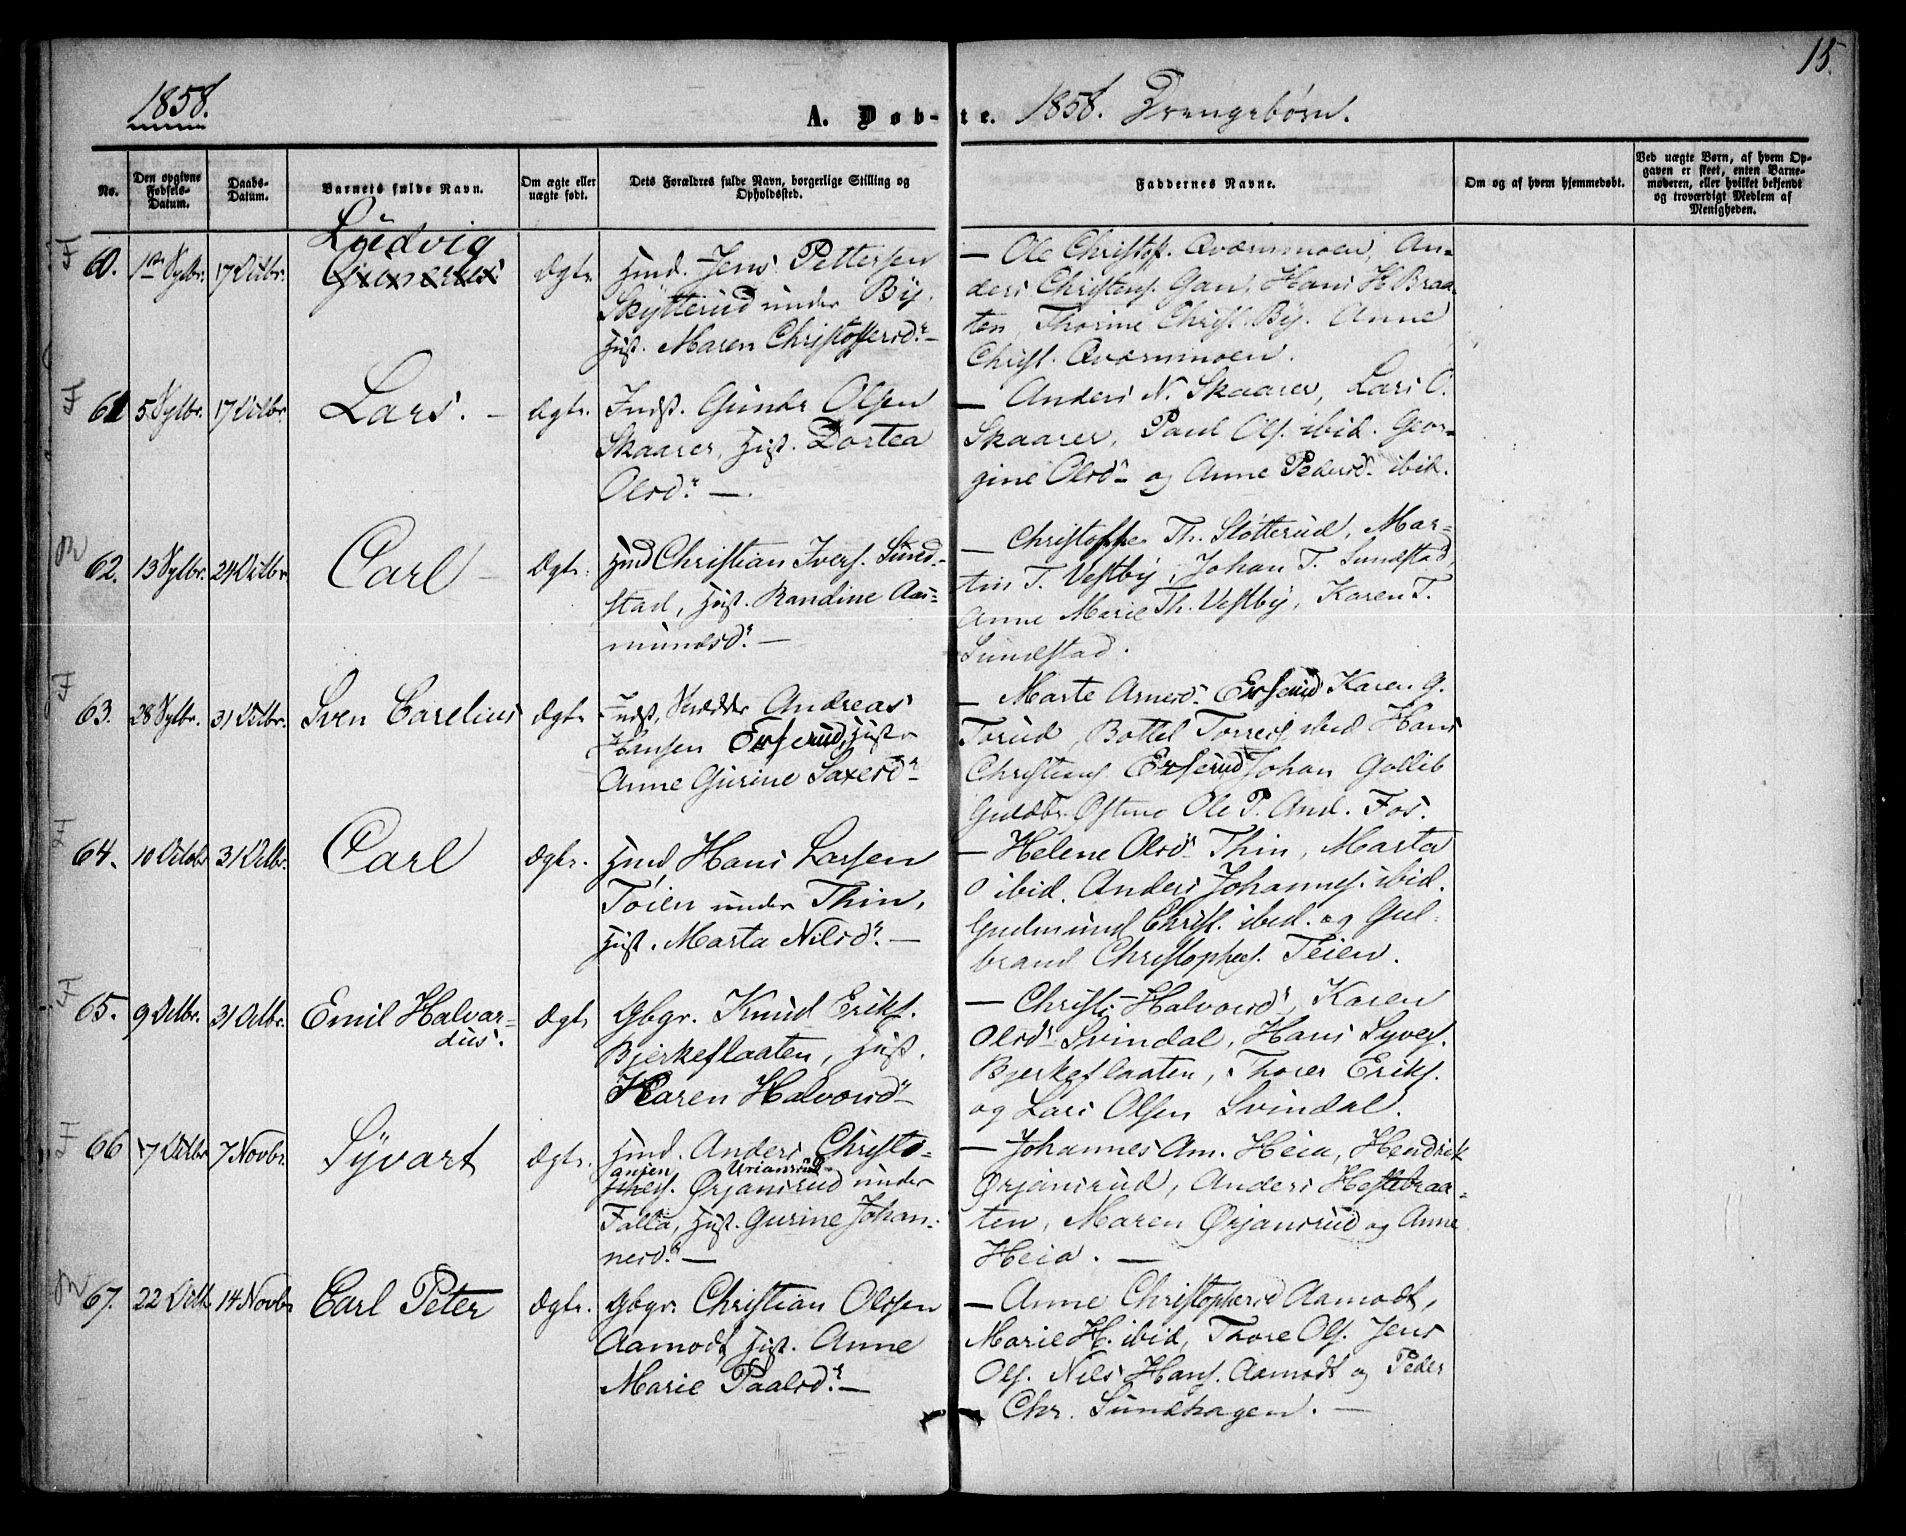 15.
1858.
A. Døb-te. 1858. Drengebørn.
No.
Den opgivne Fødsels-Datum.
Daabs-Datum.
Barnets fulde Navn.
Om ægte eller uægte født.
Dets Forældres fulde Navn, borgerlige Stilling og Opholdssted.
Faddernes Navne.
Om og af hvem hjemmedøbt.
Ved uægte Børn, af hvem Opgaven er skeet, enten Barnemoderen, eller hvilket bekjendt og troværdigt Medlem af Menigheden.
60. 1ste Sptbr. 17 Octbr. Ludvig Ægte
Hmd. Jens Pettersen
Skytterud under By.
Hust. Maren Christoffersd.
— Ole Christof. Qværnmoen, An-
ders Christens. Gan, Hans H. Braa-
ten, Thorine Christ. By. Anne
Christ. Qværnmoen.
61 5 Sptbr. 17 Octbr. Lars. — Ægte.
Indst. Gunder Olsen
Skaarer, Hust. Dortea
Olsd. —
— Anders N. Skaarer, Lars O.
Skaarer, Paul Ols. ibid. Geor-
gine Olsd. og Anne Pedersd. ibid.
62. 13 Sptbr. 24 Octbr. Carl — Ægte.
Hmd Christian Ivers. Sund-
stad, Hust. Randine Aas-
mundsd. —
— Christoffer Th. Støtterud, Mar-
tin T. Vestby, Johan T. Sundstad,
Anne Marie Th. Vestby, Karen T.
Sundstad.
63. 28 Sptbr. 31 Octbr. Sven Carelius Ægte
Indst, Andreas
Hansen Erserud, Hust.
Anne Gurine Saxesd.
— Marte Arnesd. Erserud Karen G.
Torud, Bottel Torres. ibid Hans
Christians. Erserud Johan Gollib
Ole P. And. Fos.
64. 10 Octobr 31 Octbr. Carl Ægte.
Hmd, Hans Larsen
Tøien under Thin,
Hust. Marta Nilsd. —
— Helene Olsd. Thin, Marta
O ibid. Anders Johannes. ibid.
Gudmund Christ. ibid. og Gul-
brand Christophers. Teien.
65. 9 Octbr. 31 Octbr. Emil Halvar-
dus. Ægte
Gbgr. Knud Eriks.
Bjerkeflaaten, Hust.
Karen Halvorsd.
— Christi Halvorsd, Karen
Olsd. Svindal, Hans Syvers.
Bjerkeflaaten, Thorer Eriks.
og Lars Olsen Svindal.
66 7 Octbr 7 Novbr. Syvart Ægte.
Hmd. Anders Christo-
ansen Uriansrud
phers. Ørjansrud under
Falla, Hust. Gurine Johan-
nesd. —
— Johannes Am. Heia, Hendrik
Ørjansrud, Anders Hestebraa-
ten, Maren Ørjansrud og Anne
Heia. —
67. 22 Octb. 14 Novbr Carl Peter Ægte.
Gbgr. Christian Olssen
Aamodt Hust. Anne
Marie Paalsd. —
— Anne Christophersd Aamodt,
Marie H. ibid, Thore Ols. Jens
Ols. Nils Hans. Aamodt og Peder
Chr. Sundhagen. —